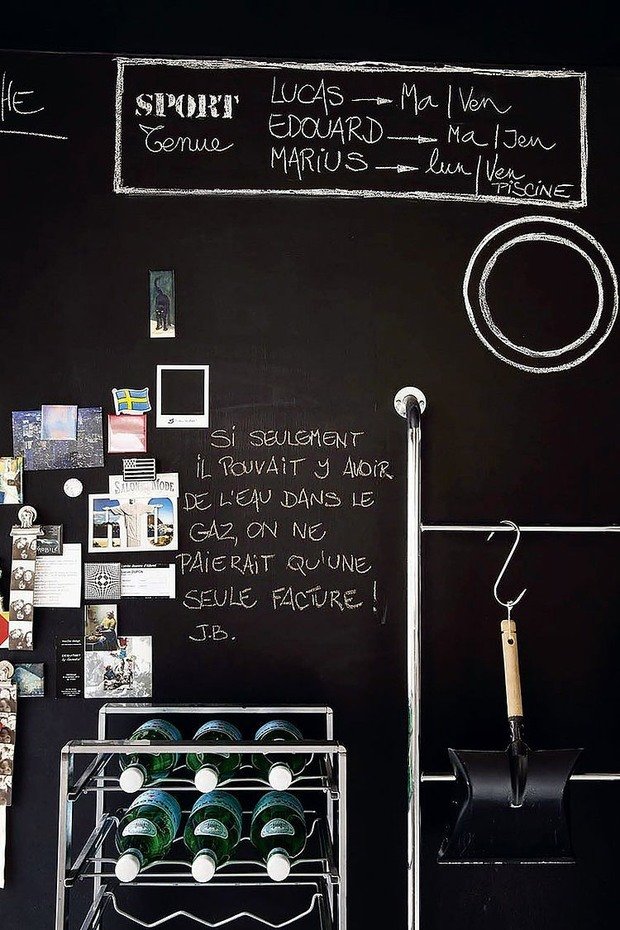 HE
SPORT
Tenue
LUCAS → Ma | Ven
EDOUARD → Ma | Jeu
MARIUS → lun | Ven
PISCINE
SI SEULEMENT
IL POUVAIT Y AVOIR
DE L'EAU DANS LE
GAZ, ON NE
PAIERAIT QU'UNE
SEULE FACTURE !
J.B.